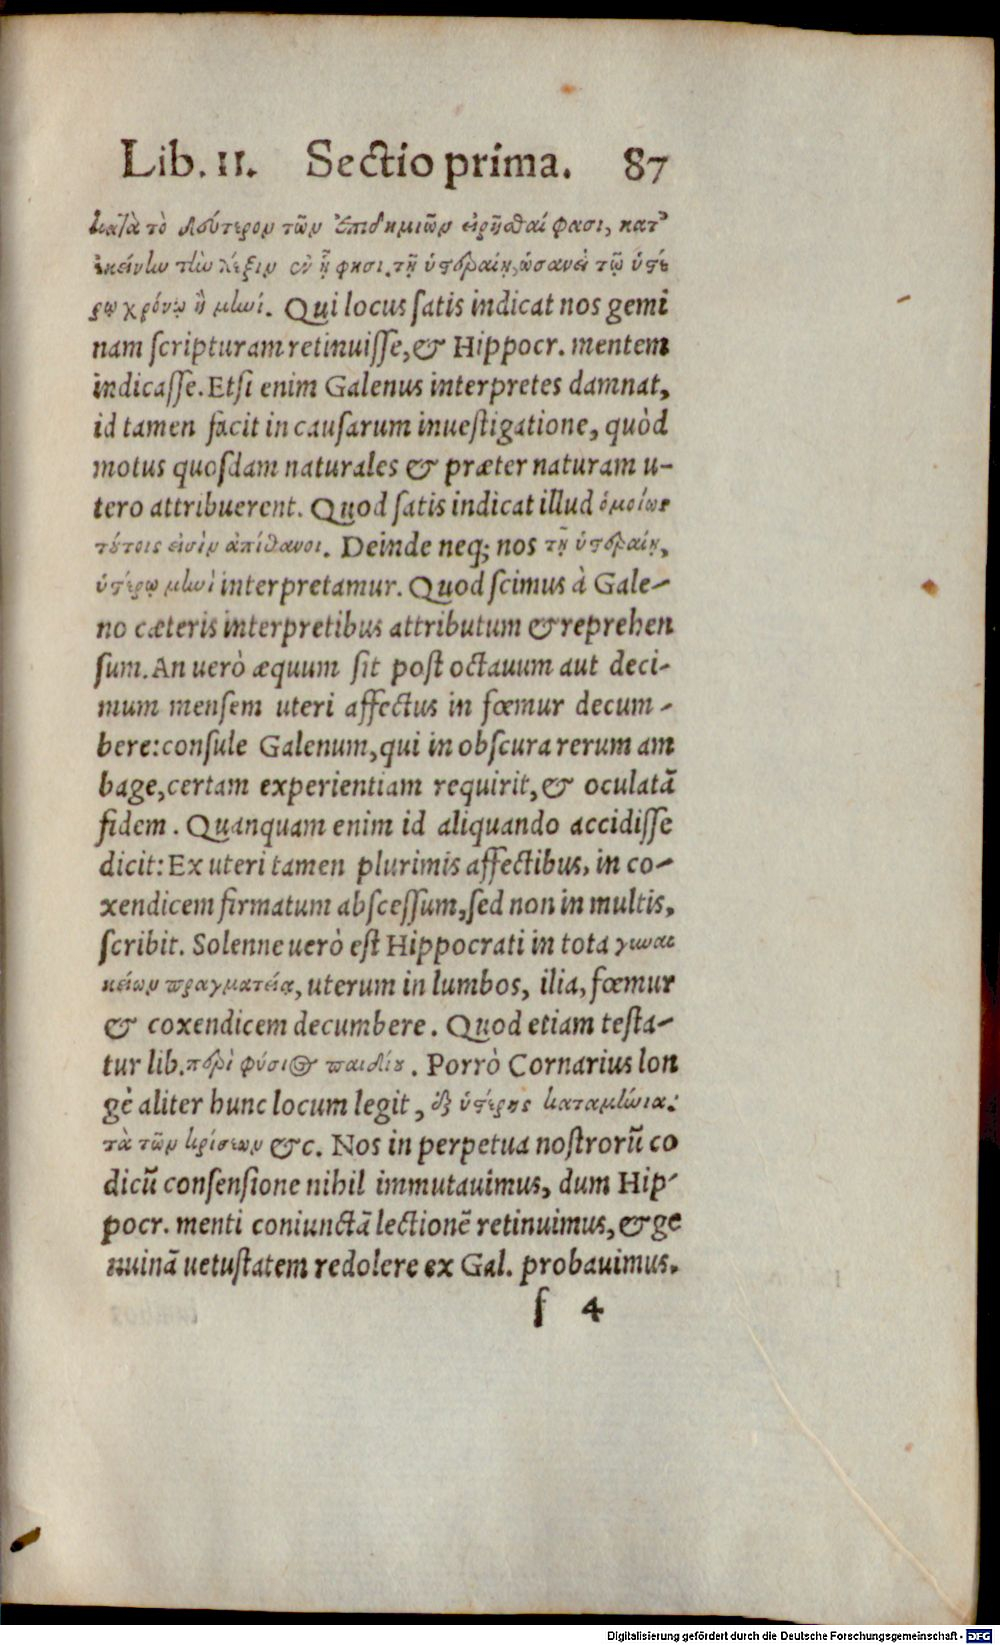 Lib. II. Sectio prima. 87
κατὰ τὸ δεύτερον τῶν Ἐπιδημιῶν εἰρῆσθαί φασι, κατ'
ἐκείνην τὴν λέξιν ἐν ᾗ φησι. τῇ ὑστεραίῃ, ὡσανεὶ τῷ ὑστέ
ρῳ χρόνῳ ἢ μηνί. Qui locus ſatis indicat nos gemi
nam ſcripturam retinuiſſe, & Hippocr. mentem
indicaſſe. Etſi enim Galenus interpretes damnat,
id tamen facit in cauſarum inueſtigatione, quòd
motus quoſdam naturales & præter naturam u-
tero attribuerent. Quod ſatis indicat illud ὁμοίως
τούτοις εἰσὶν ἀπίθανοι. Deinde neq; nos τῇ ὑστεραίῃ,
ὑστέρῳ μηνὶ interpretamur. Quod ſcimus à Gale-
no cæteris interpretibus attributum & reprehen
ſum. An uerò æquum ſit poſt octauum aut deci-
mum menſem uteri affectus in fœmur decum-
bere: conſule Galenum, qui in obſcura rerum am
bage, certam experientiam requirit, & oculatã
fidem. Quanquam enim id aliquando accidiſſe
dicit: Ex uteri tamen plurimis affectibus, in co-
xendicem firmatum abſceſſum, ſed non in multis,
ſcribit. Solenne uerò eſt Hippocrati in tota γυναι
κείων πραγματείᾳ, uterum in lumbos, ilia, fœmur
& coxendicem decumbere. Quod etiam teſta-
tur lib. περὶ φύσιος παιδίου. Porrò Cornarius lon
gè aliter hunc locum legit, ἐξ ὑστέρης καταμήνια:
τὰ τῶν κρίσεων &c. Nos in perpetua noſtrorũ co
dicũ conſenſione nihil immutauimus, dum Hip-
pocr. menti coniunctã lectionẽ retinuimus, & ge
nuinã uetuſtatem redolere ex Gal. probauimus.
ſ 4
Digitalisierung gefördert durch die Deutsche Forschungsgemeinschaft - DFG